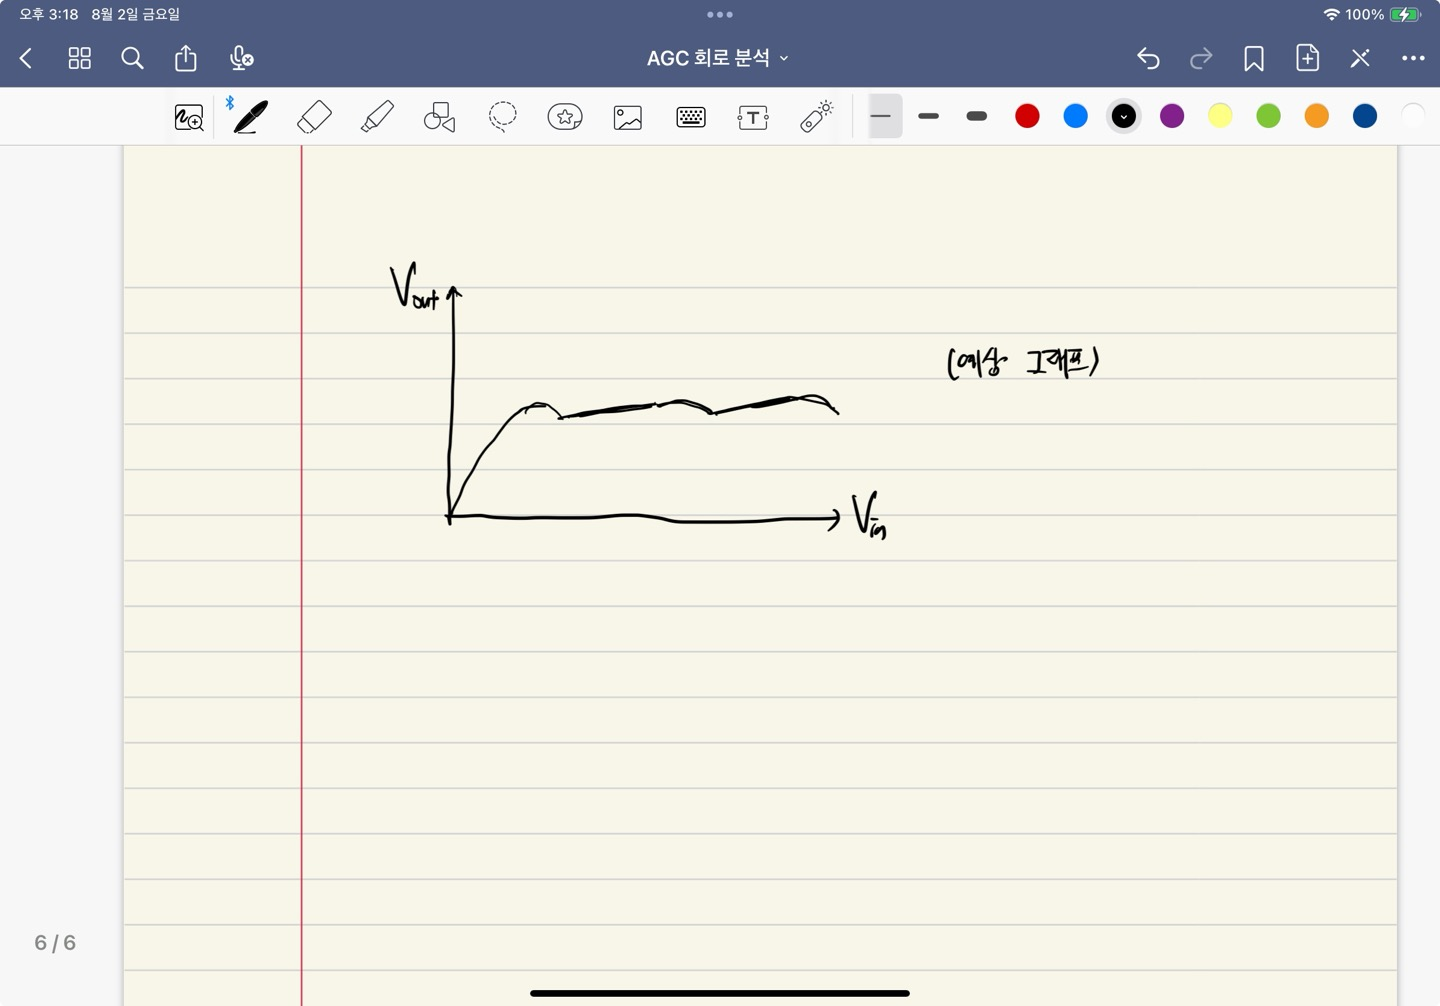 오후 3:18 8월 2일 금요일
100%
AGC 회로 분석
T
Vout
(예상 그래프)
Vin
6 / 6